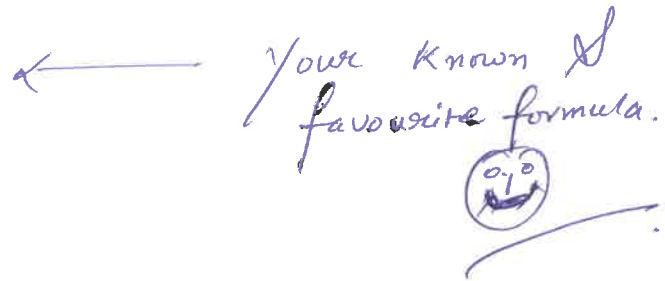 ← Your Known &
favourite formula.